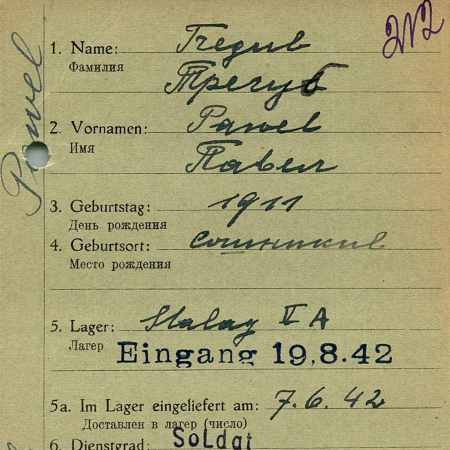 212
Pawel
1. Name: Tregub
Фамилия Трегуб
2. Vornamen: Pawel
Имя Павел
3. Geburtstag: 1911
День рождения
4. Geburtsort:
Место рождения
5. Lager: Stalag V A
Лагерь
Eingang 19.8.42
5a. Im Lager eingeliefert am: 7.6.42
Доставлен в лагерь (число)
6. Dienstgrad: Soldat